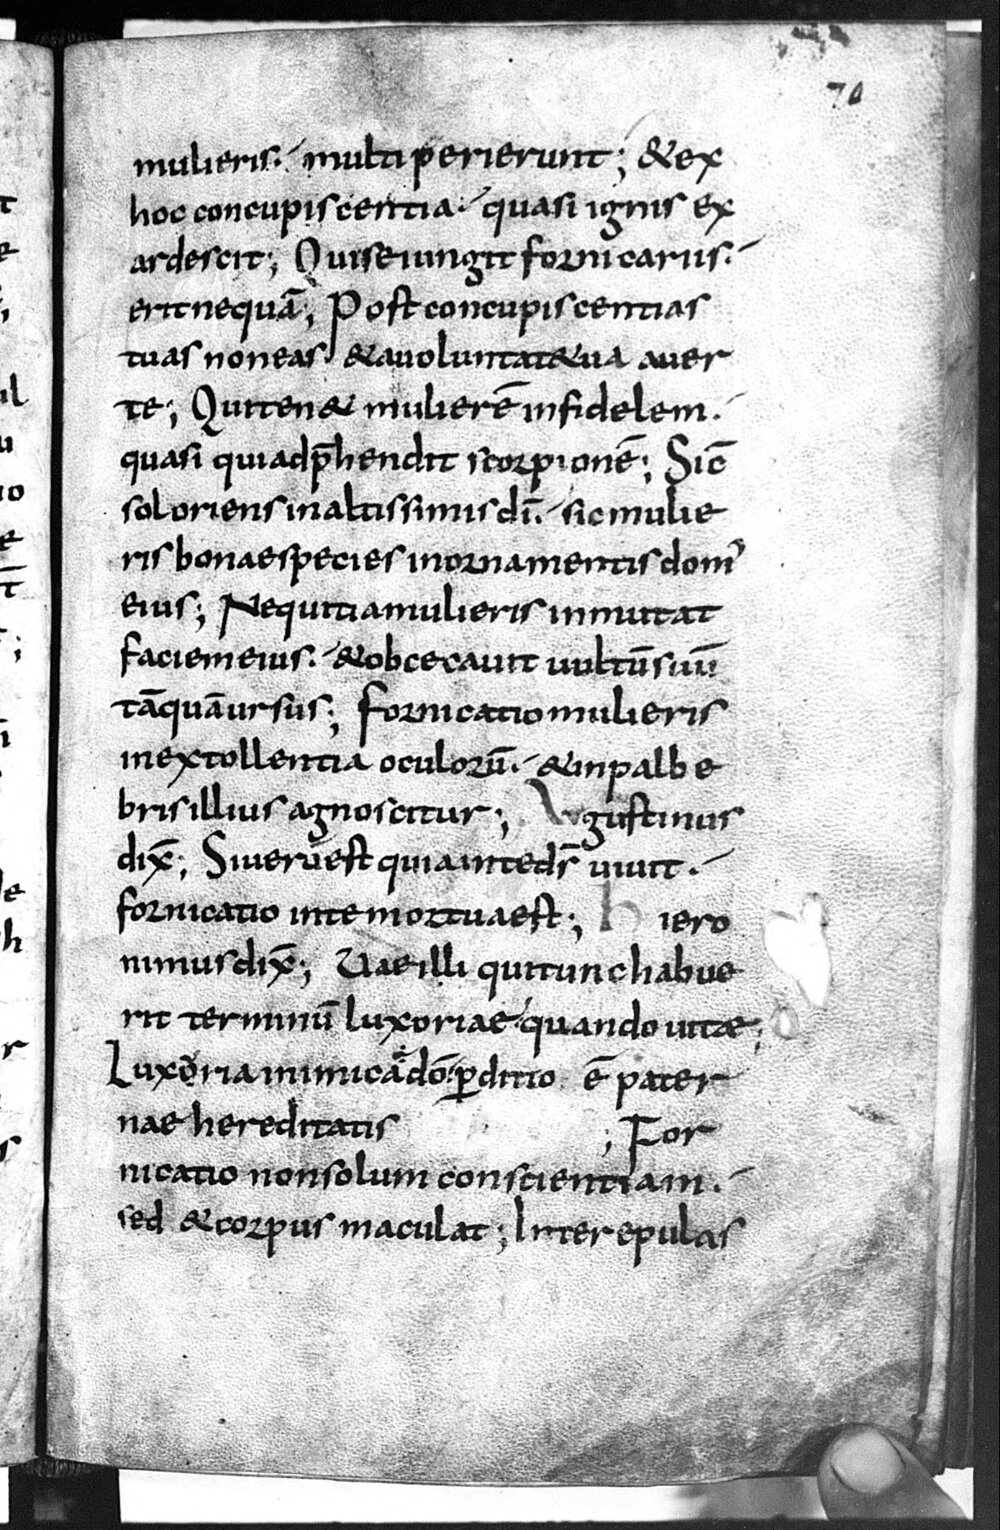 70
mulieris· multi perierunt; &ex
hoc concupiscentia· quasi ignis ex
ardescit; Quiseiungit fornicariis·
eritnequā; Post concupiscentias
tuas noneas· &auoluntat&ua auer
te; Quiten& mulierē infidelem·
quasi quiadp̄hendit scorpionē; Sic̄
soloriens inaltissimis dī· sic mulie
ris bonae species inornamentis dom̄
eius; Nequitia mulieris inmutat
faciem eius· &obcecauit uultūsuū
tāquā ursus; Fornicatio mulieris
inextollentia oculorū· &inpalbe
bris illius agnoscitur; Agustinus
dix̄; Siuerūest quiaintedš uiuit·
fornicatio inte mortuaest; hiero
nimus dix̄; Uae illi quitunc habue
rit terminū luxoriae quando uitae;
Luxoria inimica dō perditio ē pater
nae hereditatis ; For
nicatio non solum conscientiam·
sed &corpus maculat; Inter epulas